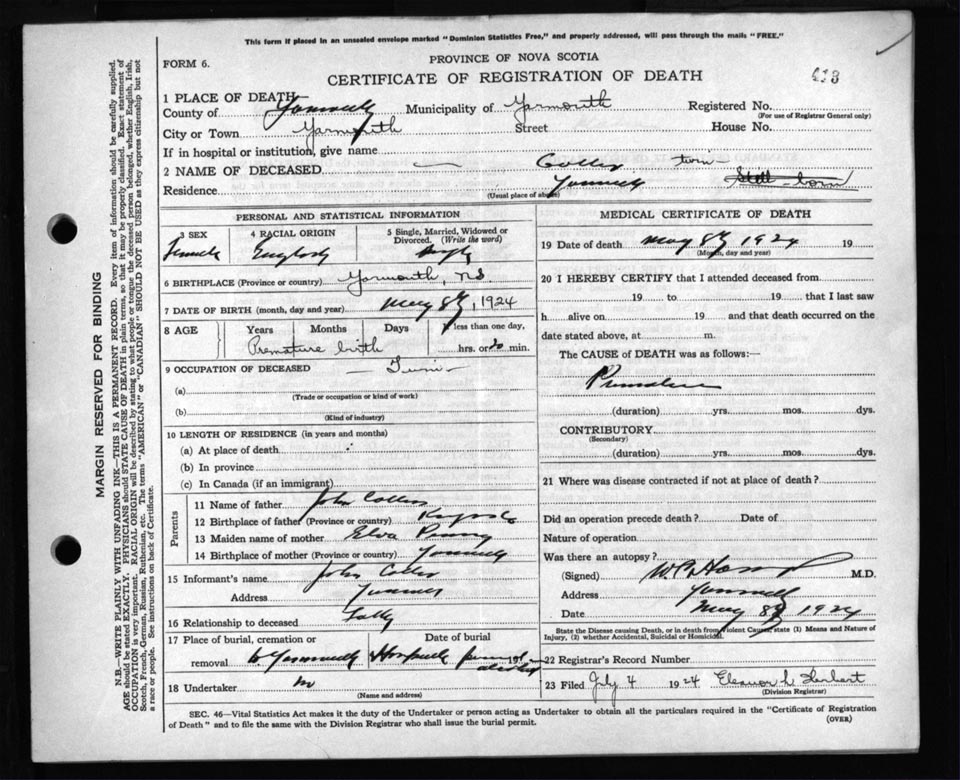 This form if placed in an unsealed envelope marked "Dominion Statistics Free," and properly addressed, will pass through the mails "FREE."
FORM 6.
PROVINCE OF NOVA SCOTIA
CERTIFICATE OF REGISTRATION OF DEATH
1 PLACE OF DEATH
County of Municipality of Yarmouth Registered No.
(For use of Registrar General only)
City or Town Yarmouth Street House No.
If in hospital or institution, give name
2 NAME OF DECEASED — twin
Residence Still-born
(Usual place of abode)
PERSONAL AND STATISTICAL INFORMATION
3 SEX 4 RACIAL ORIGIN 5 Single, Married, Widowed or Divorced. (Write the word)
Female English
6 BIRTHPLACE (Province or country) Yarmouth, N.S.
7 DATE OF BIRTH (month, day and year) May 8th, 1924
8 AGE Years Months Days If less than one day,
Premature birth hrs. or 20 min.
9 OCCUPATION OF DECEASED — Twin —
(a)
(Trade or occupation or kind of work)
(b)
(Kind of industry)
10 LENGTH OF RESIDENCE (in years and months)
(a) At place of death
(b) In province
(c) In Canada (if an immigrant)
Parents
11 Name of father John
12 Birthplace of father (Province or country)
13 Maiden name of mother Elva
14 Birthplace of mother (Province or country)
15 Informant's name John
Address
16 Relationship to deceased
17 Place of burial, cremation or removal Date of burial
19
18 Undertaker
(Name and address)
MEDICAL CERTIFICATE OF DEATH
19 Date of death May 8th 1924 19
(Month, day and year)
20 I HEREBY CERTIFY that I attended deceased from
19 to 19 that I last saw
h alive on 19 and that death occurred on the
date stated above, at m.
The CAUSE of DEATH was as follows:—
(duration) yrs. mos. dys.
CONTRIBUTORY
(Secondary)
(duration) yrs. mos. dys.
21 Where was disease contracted if not at place of death?
Did an operation precede death? Date of
Nature of operation
Was there an autopsy?
(Signed) M.D.
Address
Date May 8th 1924
State the Disease causing Death, or in death from Violent Causes, state (1) Means and Nature of Injury, (2) whether Accidental, Suicidal or Homicidal.
22 Registrar's Record Number
23 Filed July 4 1924 Eleanor L. Herbert
(Division Registrar)
SEC. 46—Vital Statistics Act makes it the duty of the Undertaker or person acting as Undertaker to obtain all the particulars required in the "Certificate of Registration
of Death" and to file the same with the Division Registrar who shall issue the burial permit. (OVER)
MARGIN RESERVED FOR BINDING
N.B.—WRITE PLAINLY WITH UNFADING INK—THIS IS A PERMANENT RECORD. Every item of information should be carefully supplied.
AGE should be stated EXACTLY. PHYSICIANS should STATE CAUSE OF DEATH in plain terms, so that it may be properly classified. Exact statement of
OCCUPATION is very important. RACIAL ORIGIN will be described by stating to what people or tongue the deceased person belonged, whether English, Irish,
Scotch, French, German, Russian, Ruthenian, etc. The terms "AMERICAN" or "CANADIAN" SHOULD NOT BE USED as they express citizenship but not
a race or people. See instructions on back of Certificate.